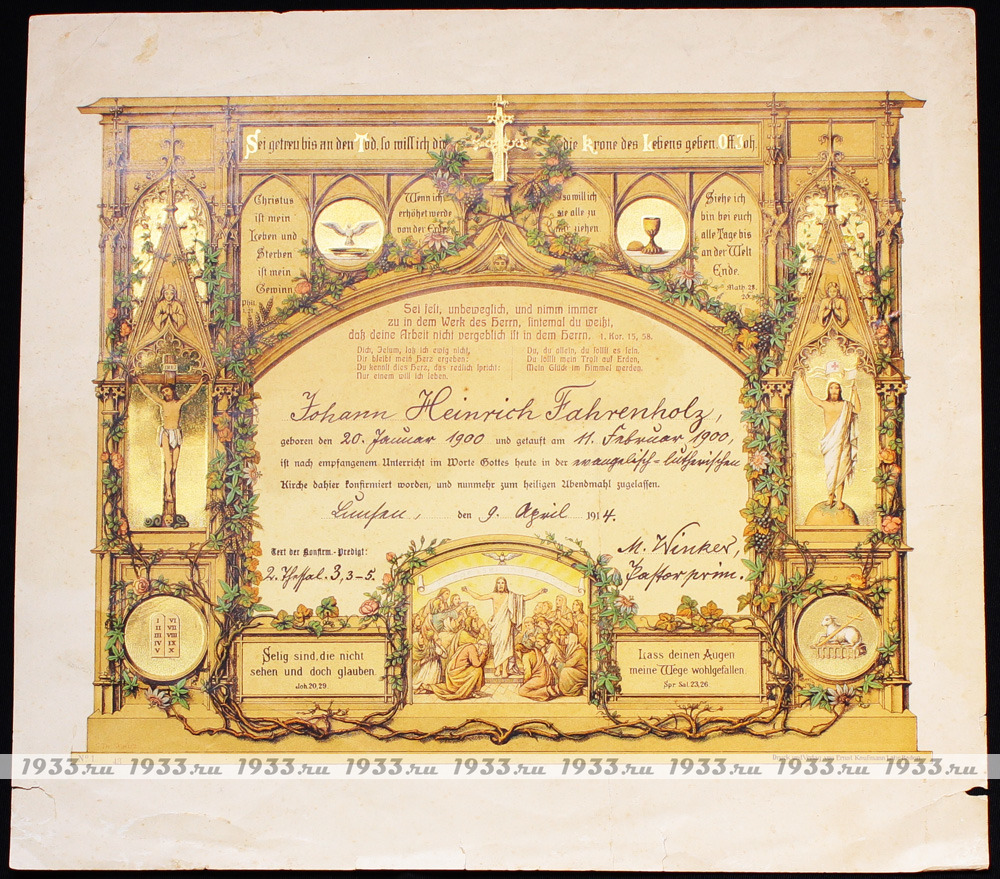 Sei getreu bis an den Tod, so will ich dir die Krone des Lebens geben. Off. Joh.
Christus
ist mein
Leben und
Sterben
ist mein
Gewinn
Phil.
Wenn ich
erhöhet werde
von der Erde
so will ich
sie alle zu
mir ziehen
Siehe ich
bin bei euch
alle Tage bis
an der Welt
Ende.
Math. 28.
20.
Sei fest, unbeweglich, und nimm immer
zu in dem Werk des Herrn, sintemal du weißt,
daß deine Arbeit nicht vergeblich ist in dem Herrn. 1. Kor. 15, 58.
Dich, Jesum, laß ich ewig nicht,
Dir bleibt mein Herz ergeben:
Du kennst dies Herz, das redlich spricht:
Nur einem will ich leben.
Du, du allein, du sollst es sein,
Du sollst mein Trost auf Erden,
Mein Glück im Himmel werden.
Johann Heinrich Fahrenholz,
geboren den 20. Januar 1900 und getauft am 11. Februar 1900,
ist nach empfangenem Unterricht im Worte Gottes heute in der evangelisch-lutherischen
Kirche dahier konfirmiert worden, und nunmehr zum heiligen Abendmahl zugelassen.
Lunsen, den 9. April 1914.
Text der Konfirm.-Predigt:
2. Thessal. 3, 3-5.
M. Winker,
Pastor prim.
INRI
I VI
II VII
III VIII
IV IX
V X
Selig sind, die nicht
sehen und doch glauben.
Joh. 20, 29.
Lass deinen Augen
meine Wege wohlgefallen.
Spr. Sal. 23, 26.
Ernst Kaufmann
1933.ru 1933.ru 1933.ru 1933.ru 1933.ru 1933.ru 1933.ru 1933.ru 1933.ru